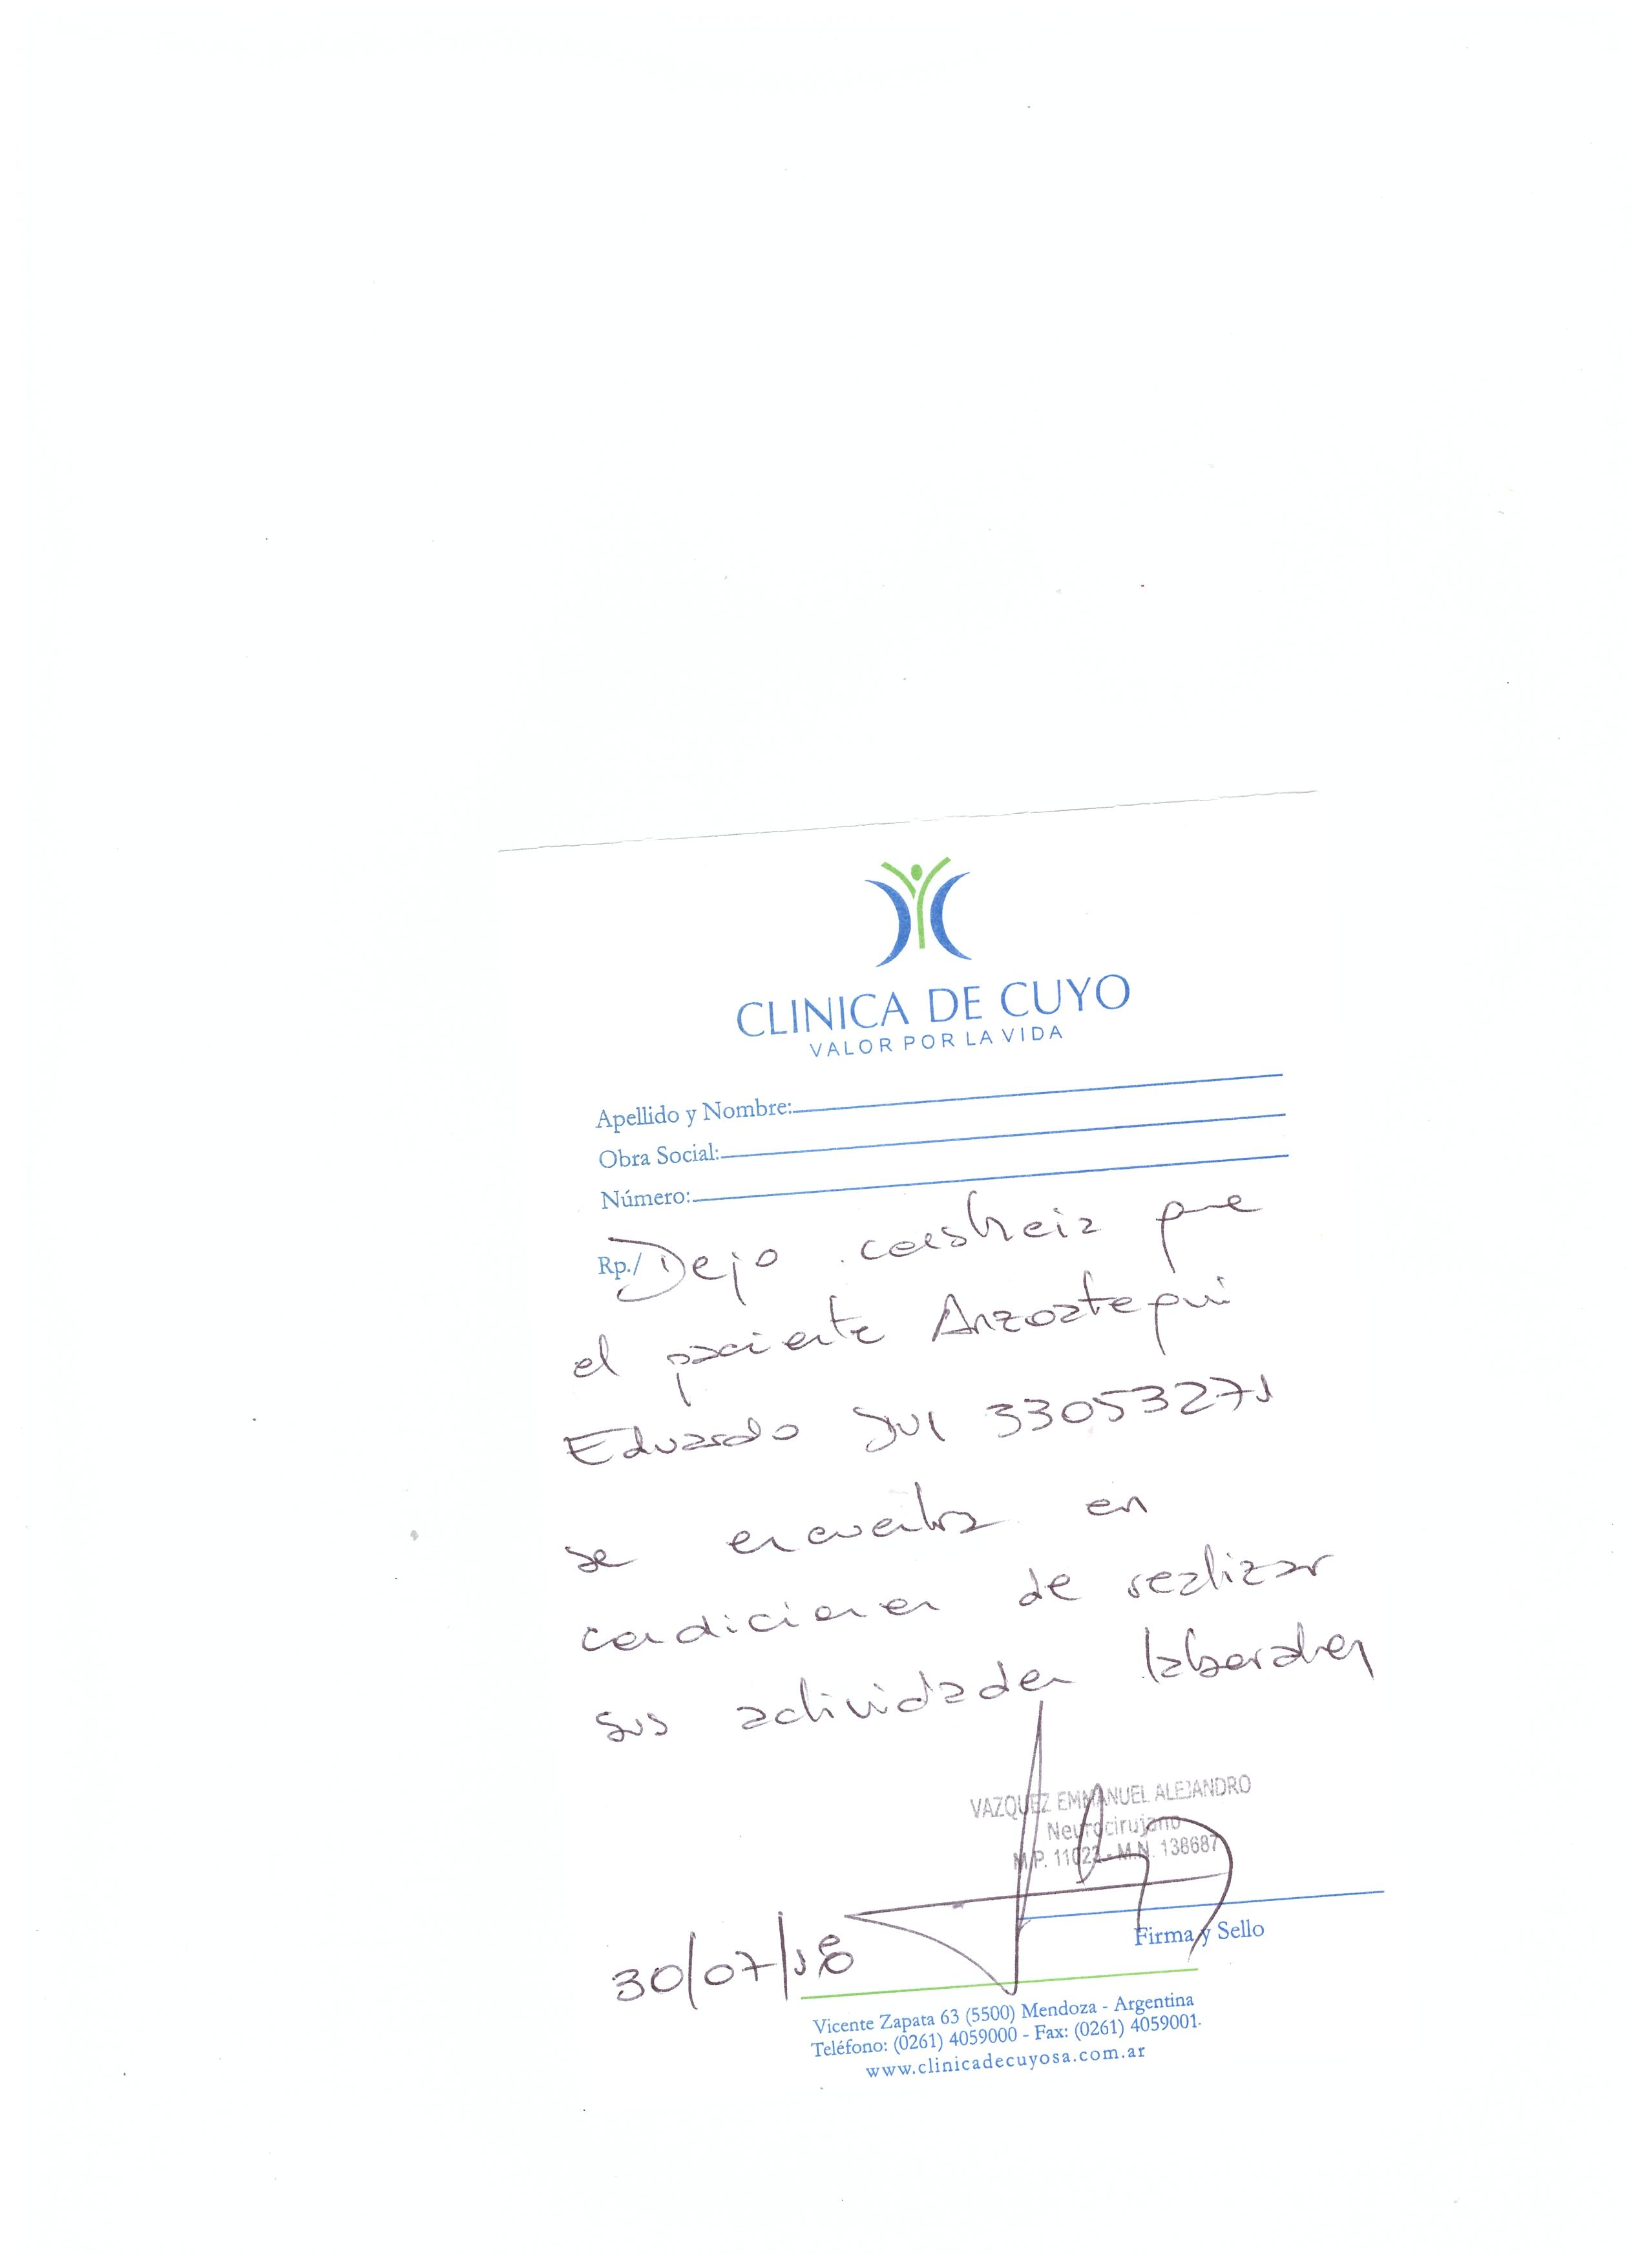 CLINICA DE CUYO
VALOR POR LA VIDA
Apellido y Nombre:
Obra Social:
Número:
Rp./ Dejo constancia que
el paciente Anzoategui
Eduardo DNI 33053271
se encuentra en
condiciones de realizar
sus actividades laborales
VAZQUEZ EMMANUEL ALEJANDRO
Neurocirujano
M.P. 11022 - M.N. 138687
Firma y Sello
30/07/18
Vicente Zapata 63 (5500) Mendoza - Argentina
Teléfono: (0261) 4059000 - Fax: (0261) 4059001.
www.clinicadecuyosa.com.ar